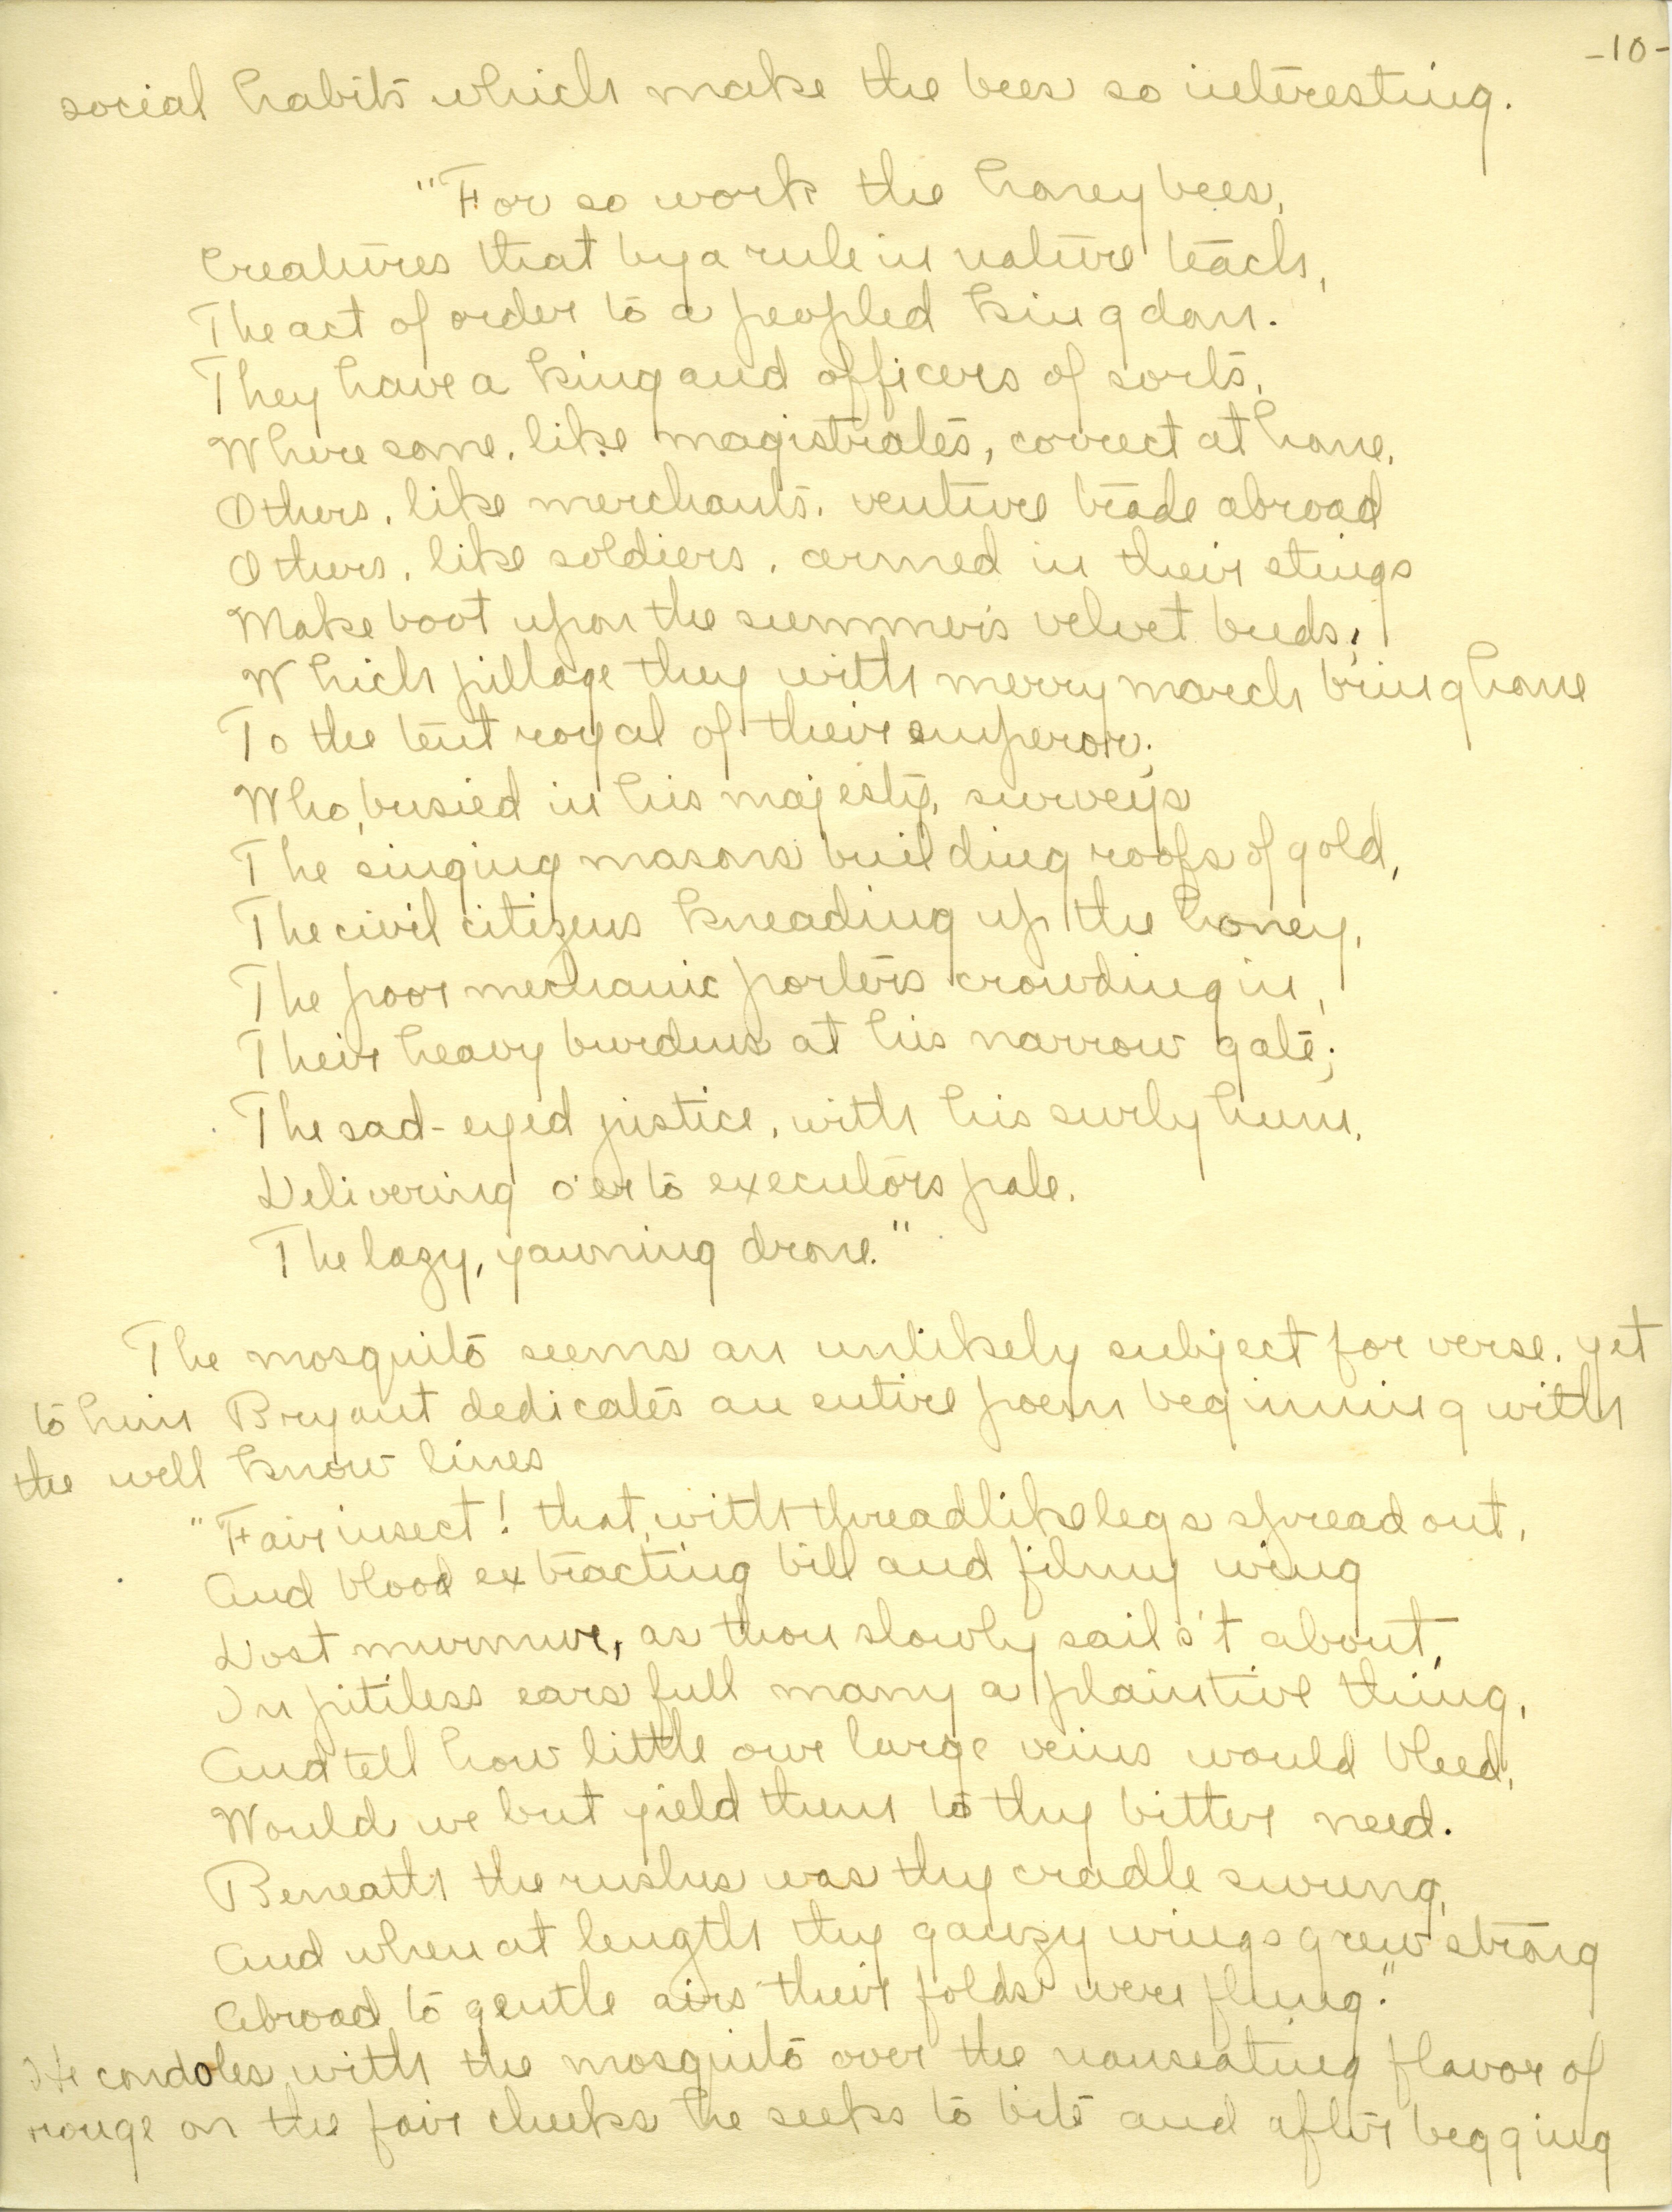 -10-
social habits which make the bees so interesting.
"For so work the honey bees,
Creatures that by a rule in nature teach,
The act of order to a peopled kingdom.
They have a king and officers of sorts,
Where some, like magistrates, correct at home,
Others, like merchants, venture trade abroad
Others, like soldiers, armed in their stings
Make boot upon the summer's velvet buds;
Which pillage they with merry march bring home
To the tent royal of their emperor;
Who, busied in his majesty, surveys
The singing masons building roofs of gold,
The civil citizens kneading up the honey,
The poor mechanic porters crowding in,
Their heavy burdens at his narrow gate;
The sad-eyed justice, with his surly hum,
Delivering o'er to executors pale.
The lazy, yawning drone."
The mosquito seems an unlikely subject for verse, yet
to him Bryant dedicates an entire poem beginning with
the well know lines
"Fair insect! that, with threadlike legs spread out,
And blood extracting bill and filmy wing
Dost murmur, as thou slowly sails't about,
In pitiless ears full many a plaintive thing,
And tell how little our large veins would bleed,
Would we but yield them to thy bitter need.
Beneath the rushes was thy cradle swung,
And when at length thy gauzy wings grew strong
Abroad to gentle airs their folds were flung."
He condoles with the mosquito over the nauseating flavor of
rouge on the fair cheeks he seeks to bite and after begging